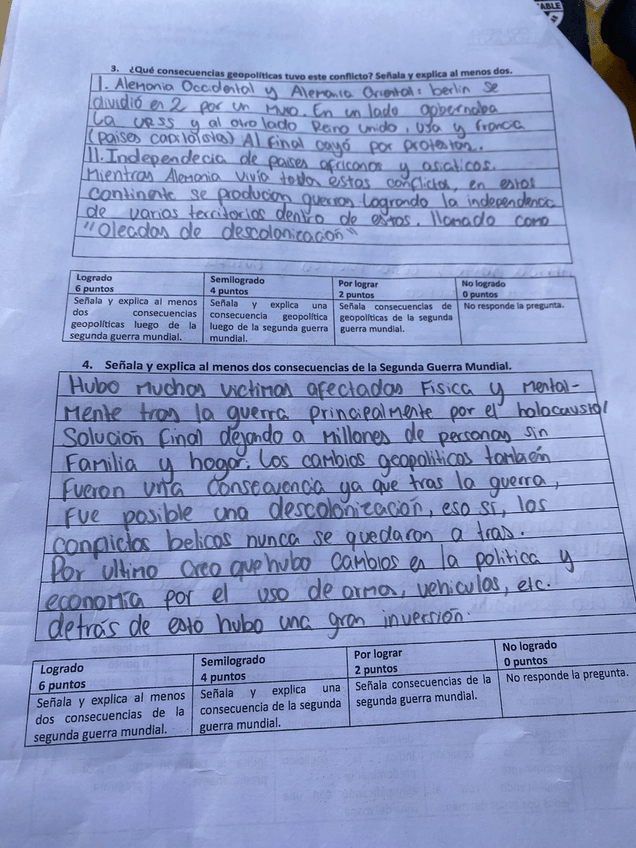 ABLE
3. ¿Qué consecuencias geopolíticas tuvo este conflicto? Señala y explica al menos dos.
I. Alemania Occidental y Alemania Oriental: berlin se
dividió en 2 por un Muro. En un lado gobernaba
La URSS y al otro lado Reino Unido, Usa y Francia
(paises capitalistas) Al final cayó por protestas.
II. Independecia de paises africanos y asiaticos.
Mientras Alemania vivía todos estos conflictos, en estos
continente se producian guerras logrando la independencia
de varios territorios dentro de estos. llamado como
"Oleadas de descolonización"
Logrado
6 puntos
Semilogrado
4 puntos
Por lograr
2 puntos
No logrado
0 puntos
Señala y explica al menos
dos consecuencias
geopolíticas luego de la
segunda guerra mundial.
Señala y explica una
consecuencia geopolítica
luego de la segunda guerra
mundial.
Señala consecuencias de
geopolíticas de la segunda
guerra mundial.
No responde la pregunta.
4. Señala y explica al menos dos consecuencias de la Segunda Guerra Mundial.
Hubo muchas victimas afectadas Fisica y Mental-
mente tras la guerra principalmente por el holocausto/
Solución Final dejando a Millones de personas sin
Familia y hogar. Los cambios geopoliticos también
Fueron una consecuencia ya que tras la guerra,
Fue posible una descolonización, eso si, los
conflictos belicos nunca se quedaron a tras.
Por ultimo creo que hubo cambios en la politica y
economía por el uso de arma, vehiculos, etc.
detrás de esto hubo una gran inversión.
Logrado
6 puntos
Semilogrado
4 puntos
Por lograr
2 puntos
No logrado
0 puntos
Señala y explica al menos
dos consecuencias de la
segunda guerra mundial.
Señala y explica una
consecuencia de la segunda
guerra mundial.
Señala consecuencias de la
segunda guerra mundial.
No responde la pregunta.